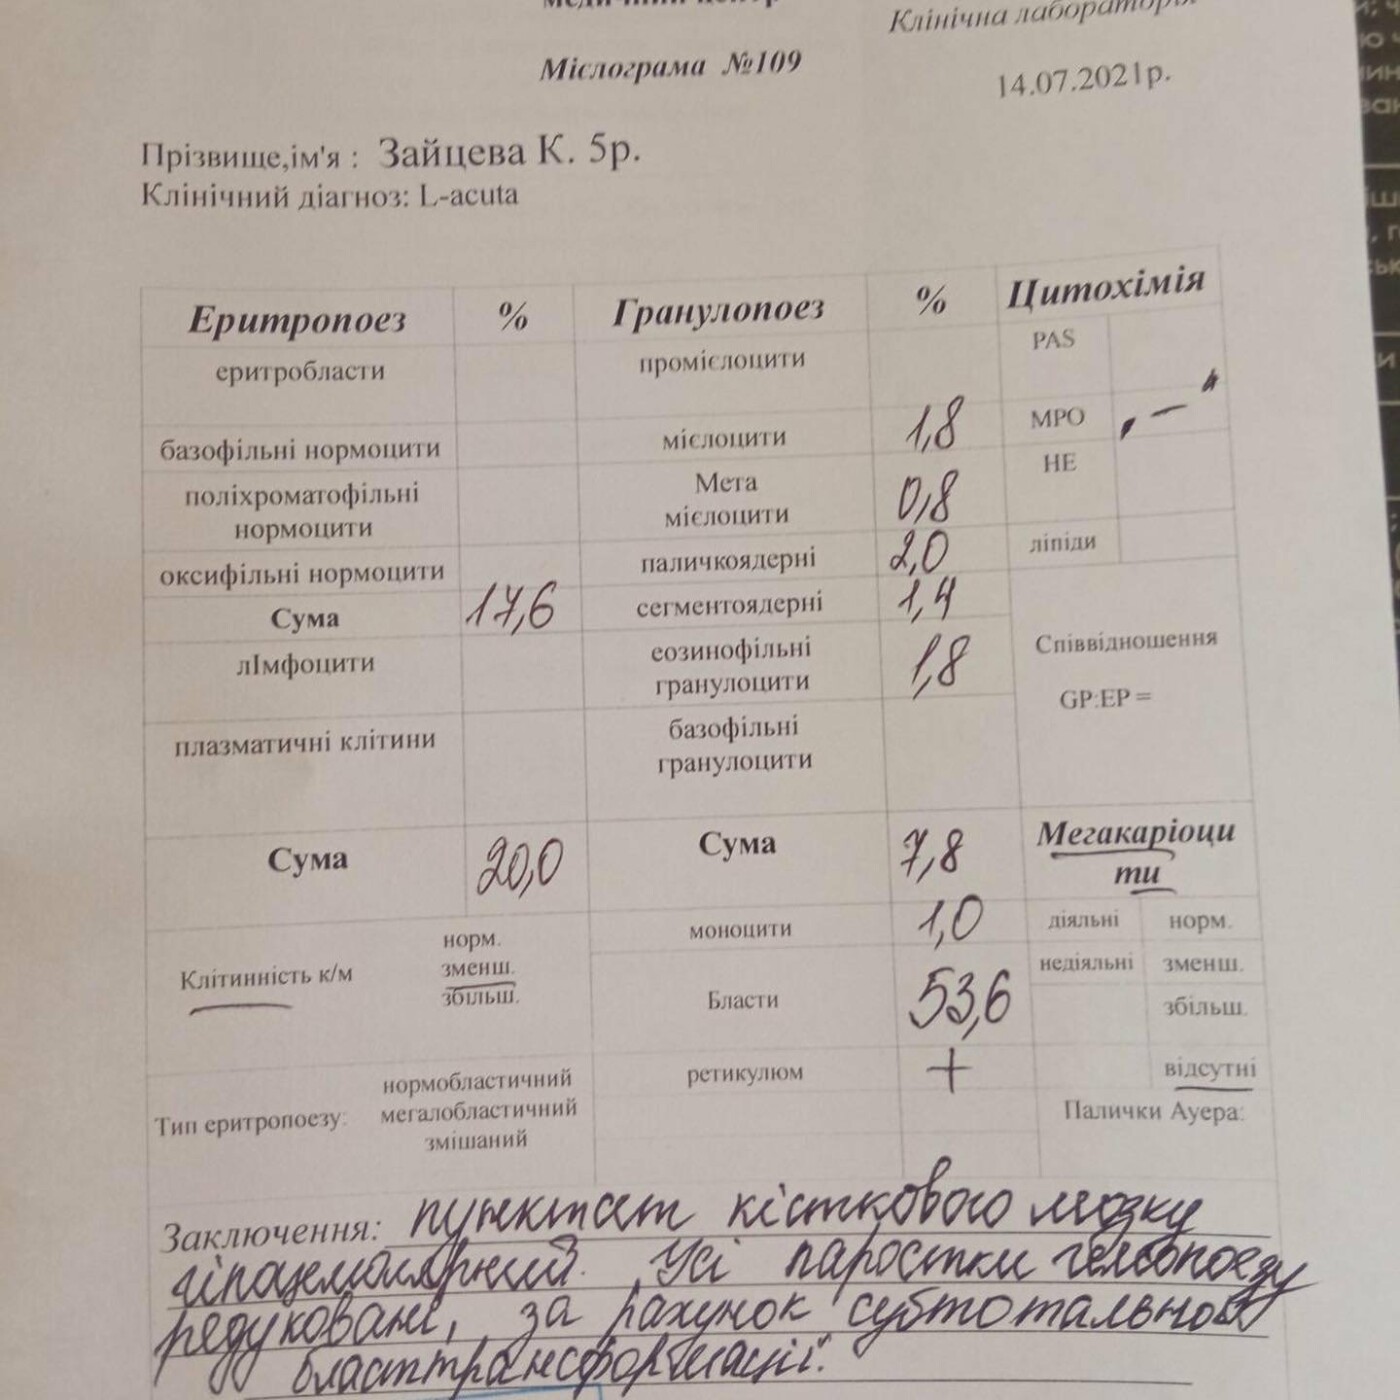 медичний центр
Клінічна лабораторія
Мієлограма №109
14.07.2021р.
Прізвище,ім'я : Зайцева К. 5р.
Клінічний діагноз: L-acuta
Еритропоез % Гранулопоез % Цитохімія
еритробласти промієлоцити PAS
базофільні нормоцити мієлоцити 1,8 МРО "—"
поліхроматофільні Мета НЕ
нормоцити мієлоцити 0,8
оксифільні нормоцити паличкоядерні 2,0 ліпіди
Сума 17,6 сегментоядерні 1,4
лІмфоцити еозинофільні Співвідношення
гранулоцити 1,8 GP:EP =
плазматичні клітини базофільні
гранулоцити
Сума 20,0 Сума 7,8 Мегакаріоци
ти
моноцити 1,0 діяльні норм.
Клітинність к/м норм.
зменш.
збільш.
недіяльні зменш.
Бласти 53,6 збільш.
ретикулюм + відсутні
Тип еритропоезу: нормобластичний
мегалобластичний
змішаний
Палички Ауера:
Заключення: пунктат кісткового мозку
гіпоцелюлярний. Усі паростки гемопоезу
редуковані, за рахунок субтотальної
бласттрансформації.